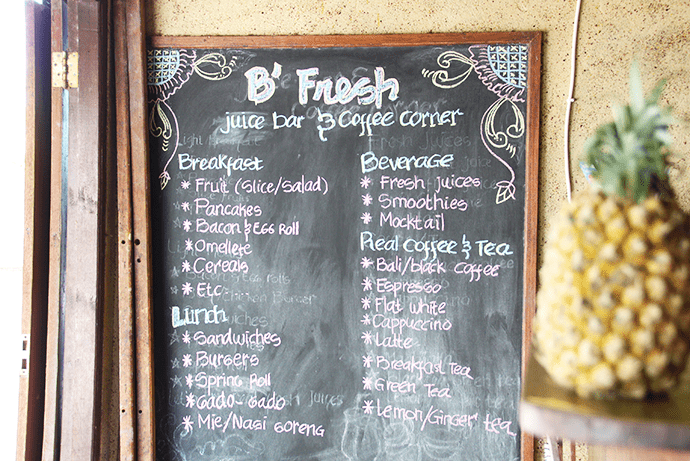 B' Fresh
juice bar & Coffee corner
Breakfast
* Fruit (slice/salad)
* Pancakes
* Bacon & Egg Roll
* Omellete
* Cereals
* Etc
Lunch
* Sandwiches
* Burgers
* Spring Roll
* Gado Gado
* Mie/Nasi goreng
Beverage
* Fresh juices
* Smoothies
* Mocktail
Real Coffee & Tea
* Bali/black coffee
* Espresso
* Flat white
* Cappuccino
* Latte
* Breakfast Tea
* Green Tea
* Lemon/Ginger tea